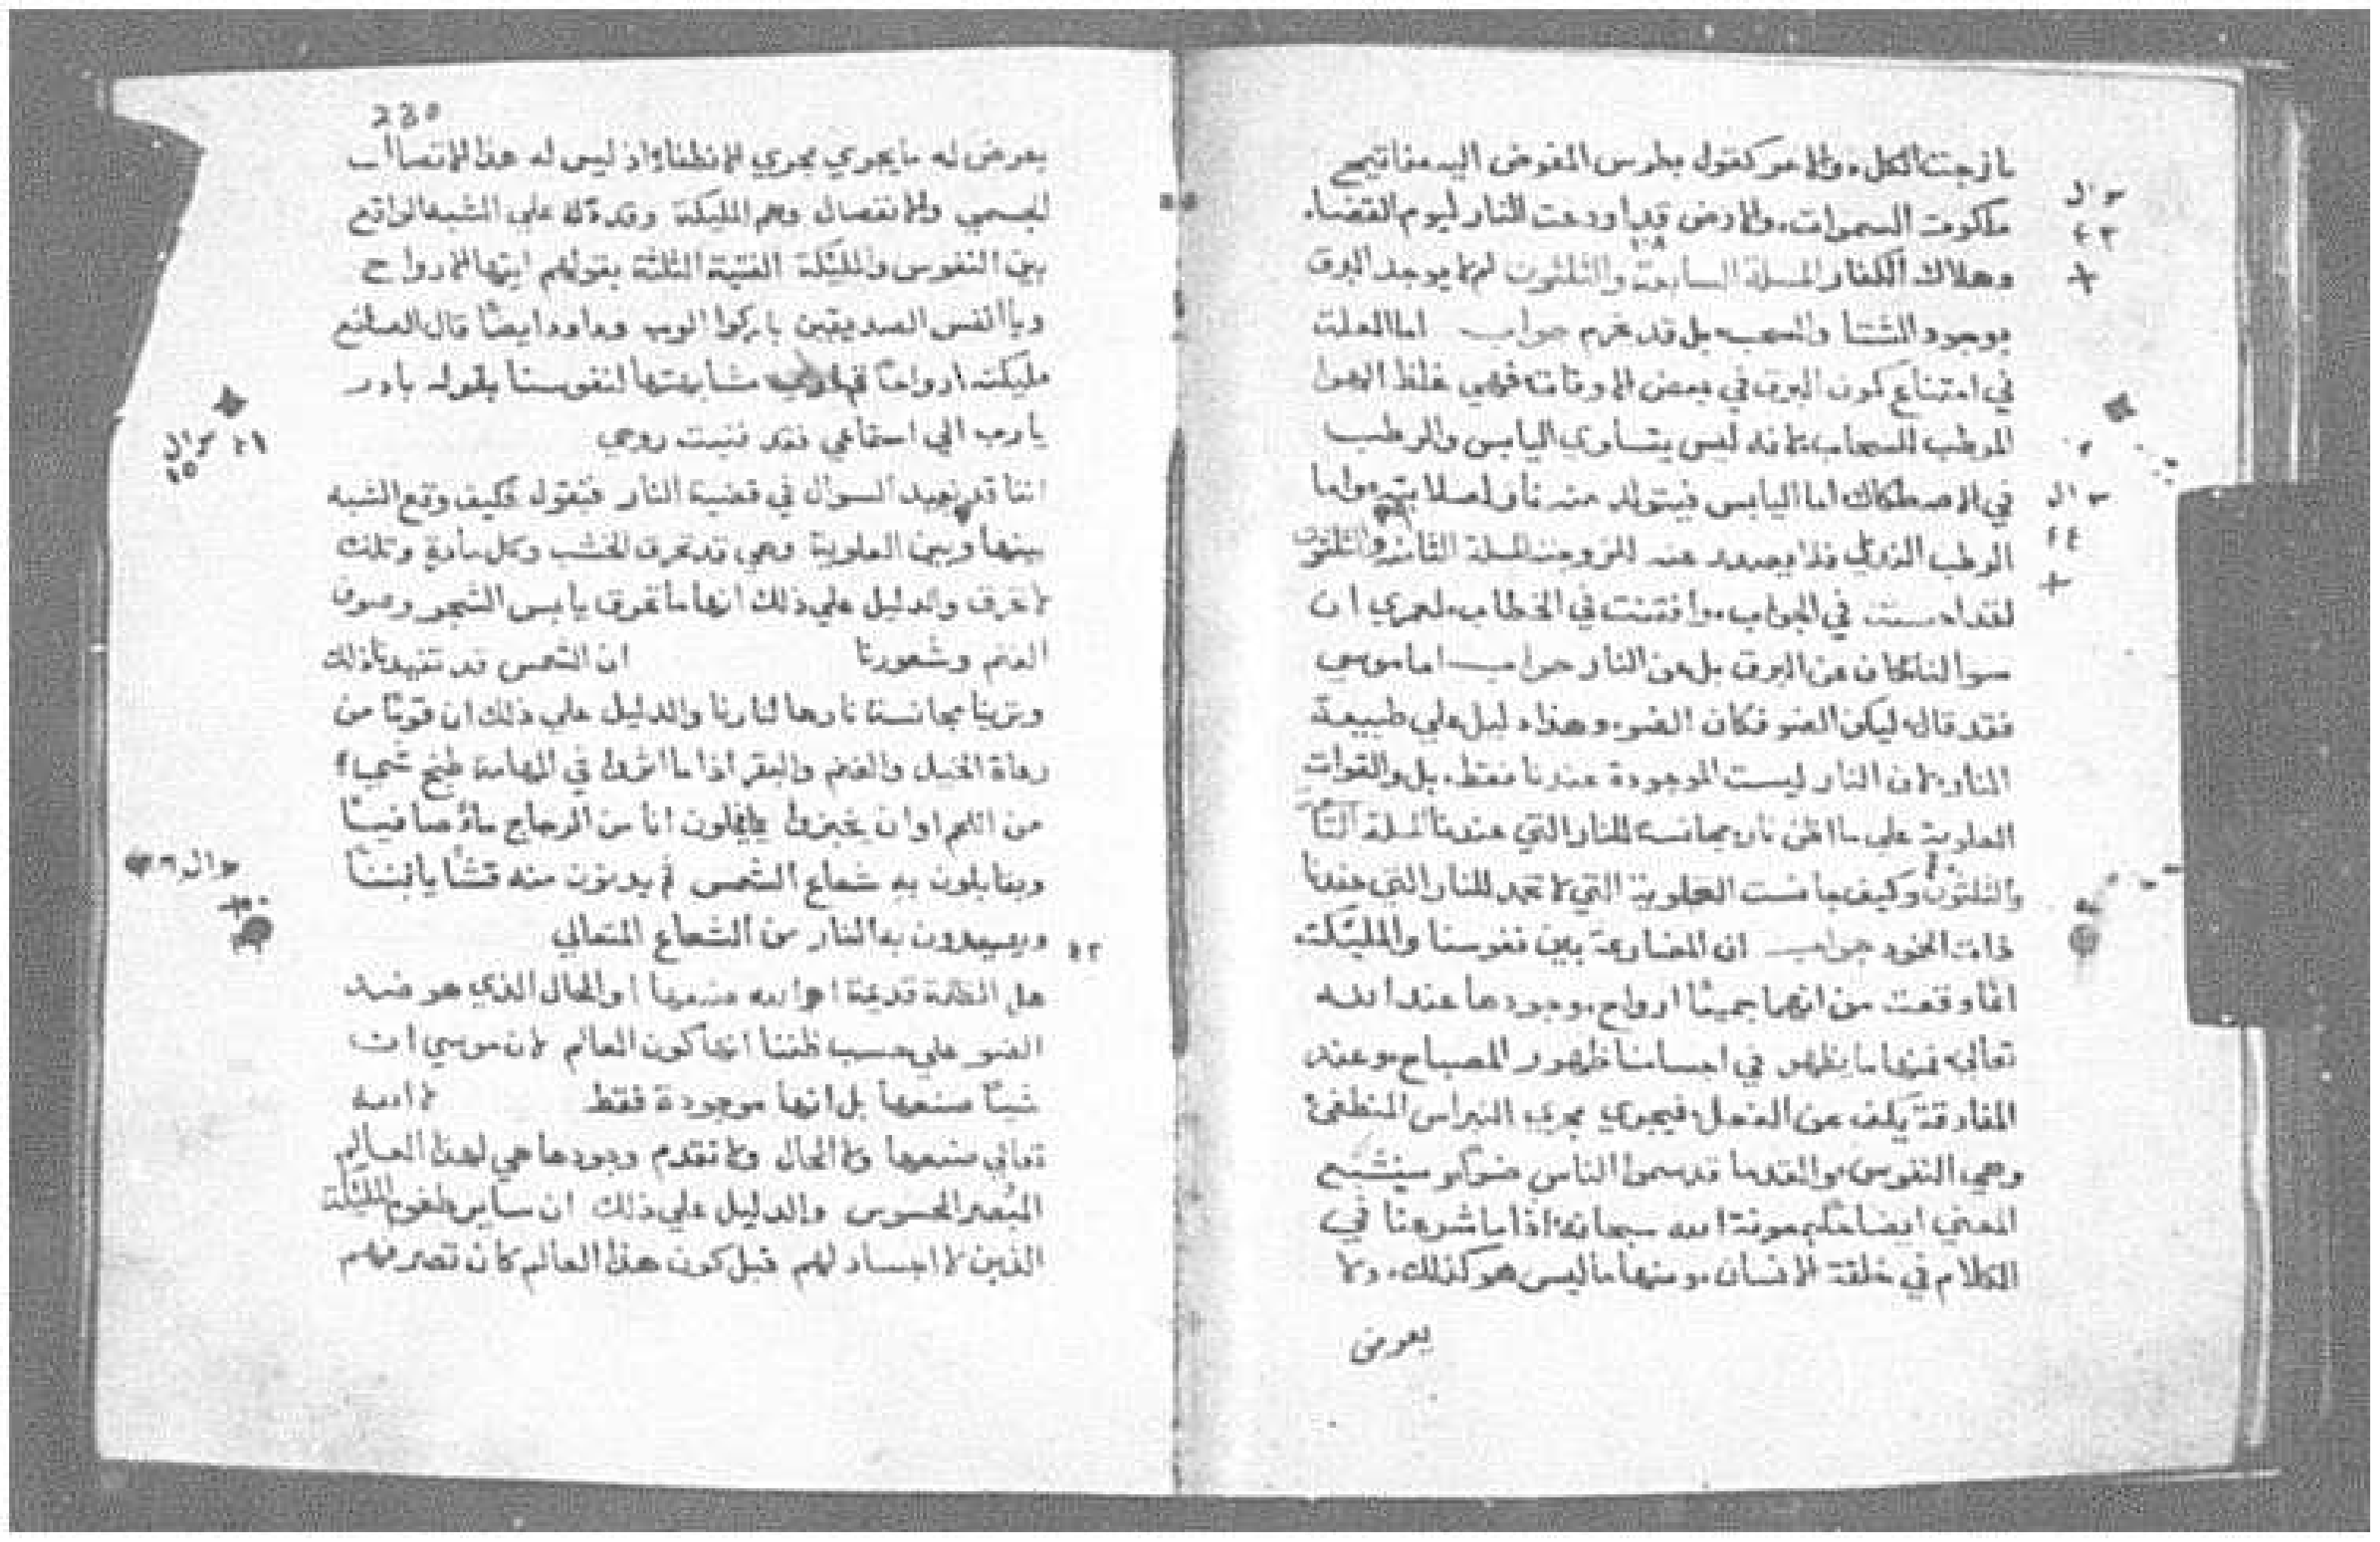 مازجت الكل والامر كقول بطرس المفوض اليه مفاتيح
ملكوت السموات والارض قد اودعت للنار ليوم القضاء
سوال
٤٣
وهلاك الكفار المسلة السابعة والثلثون لم لا يوجد البرق
بوجود الشتا والسحب بل قد جواب اما العلة
في امتناع كون البرق في بعض الاوقات فهي غلظ الهوا
المرطب للسحاب لانه ليس يتساوي اليابس والرطب
في الاصطكاك اما اليابس فيتولد منه نار لصلابته واما
سوال
٤٤
الرطب فلا يصدر عنه المسلة الثامنة والثلثون
لقد احسنت في الجواب وافتنت في الخطاب لعمري ان
سوالنا كان عن البرق بل عن النار جواب اما موسي
فقد قال ليكن الضو فكان الضو وهذا دليل علي طبيعة
النار لان النار ليست الموجودة عندنا فقط بل والقوات
العلوية علي ما اظن نار مجانسة للنار التي عندنا المسلة
والثلثون وكيف جانست العلوية التي لا تخمد للنار التي عندنا
ذات الخمود جواب ان المضارعة بين نفوسنا والمليكة
انما وقعت من انهما جميعًا ارواح وجودها عند الله
تعالي فمنها ما يظهر في اجسامنا ظهور المصباح وعند
المفارقة يكف عن الفعل فيجري مجري النبراس المنطفئ
وهي النفوس والقدما قد سموا الناس ضوا وسيتضح
المعني ايضا لكم بمعونة الله سبحانه اذا ما شرعنا في
الكلام في خلقة الانسان ومنها ما ليس هو كذلك ولا
يعرض
230
يعرض له ما يجري مجري الانطفاء اذ ليس له هذا الاتصال
الجسمي والانفصال وهم المليكة وقد دلنا علي الشبه الواقع
بين النفوس والمليكة الفتية الثلثة بقولهم ايتها الارواح
ويا انفس الصديقين باركوا الرب وداود ايضًا قال الصانع
مليكته ارواحًا مشابهتها لنفوسنا بقوله بادر
يارب الي استماعي فقد فنيت روحي
سوال
٤٥
اننا قد نعيد السوال في قضية النار فنقول فكيف وقع الشبه
بينها وبين العلوية وهي قد تحرق الخشب وكل مادة وتلك
لا تحرق والدليل علي ذلك انها ما تحرق يابس الشجر وصوف
الغنم وشعورنا ان الشمس قد تفيدنا ذلك
وترينا مجانسة نارها لنارنا والدليل علي ذلك ان قومًا من
رعاة الخيل والغنم والبقر اذا ما اثروا في المهامة طبخ شي
من اللحم او ان يخبزوا يملون انا من الزجاج ماء صافيًا
ويقابلون به شعاع الشمس ثم يدنون منه قشًا يابسًا
ويصيدون به النار من الشعاع المتعالي
سوال
هل الظلمة قديمة ام الله صنعها او الحال الذي هو ضد
الضو علي حسب ظننا انها كون العالم لان موسي
صنعها بل انها موجودة فقط لا الله
تعالي صنعها ولا الحال ولا تقدم وجودها هي لهذا العالم
المبصر المحسوس والدليل علي ذلك ان ساير طغوم المليكة
الذين لا اجساد لهم قبل كون هذا العالم كان تصرفهم